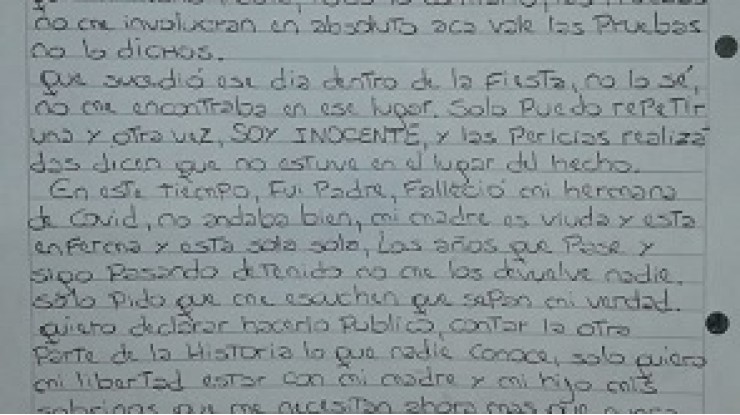 no me involucran en absoluto aca vale las Pruebas
no lo dichos.
que sucedió ese dia dentro de la Fiesta, no lo sé,
no me encontraba en ese lugar. Solo Puedo rePeTir
una y otra vez, SOY INOCENTE, y las Pericias realiza
das dicen que no estuve en el lugar del hecho.
En este tiempo, Fui Padre, Falleció mi hermana
de Covid, no andaba bien, mi madre es viuda y esta
enferma y esta sola sola, Los años que Pase y
sigo Pasando detenido no me los devuelve nadie.
sólo Pido que me escuchen que sepan mi verdad.
quiero declarar hacerlo Publico, contar la otra
Parte de la Historia lo que nadie conoce, solo quiero
mi libertad estar con mi madre y mi hijo mis
sobrinas que me necesitan ahora mas que nunca